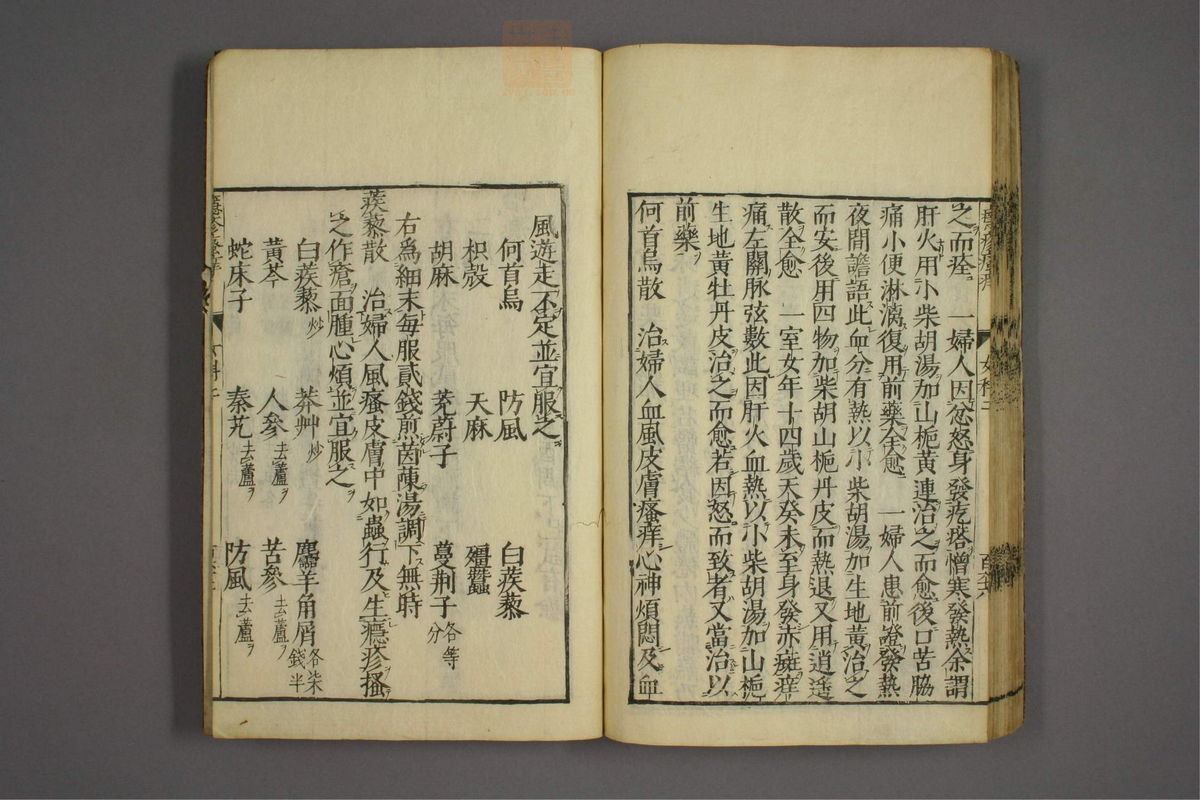 之而痊 一婦人因忿怒身發疙瘩憎寒發熱余謂
肝火用小柴胡湯加山梔黃連治之而愈後口苦脇
痛小便淋漓復用前藥全愈 一婦人患前證發熱
夜間譫語此血分有熱以小柴胡湯加生地黃治之
而安後用四物加柴胡山梔丹皮而熱退又用逍遙
散全愈 一室女年十四歲天癸未至身發赤癍痒
痛左關脉弦數此因肝火血熱以小柴胡湯加山梔
生地黃牡丹皮治之而愈若因怒而致者又當治以
前藥
何首烏散 治婦人血風皮膚瘙痒心神煩悶及血
風遊走不定並宜服之
何首烏 防風 白蒺藜
枳殼 天麻 殭蠶
胡麻 茺蔚子 蔓荆子各等分
右爲細末每服貳錢煎茵蔯湯調下無時
蒺藜散 治婦人風瘙皮膚中如蟲行及生癮疹搔
之作瘡面腫心煩並宜服之
白蒺藜炒 莽艸炒 麢羊角屑各柒錢半
黃芩 人參去蘆ヲ 苦參去蘆ヲ
蛇床子 秦艽去蘆ヲ 防風去蘆ヲ